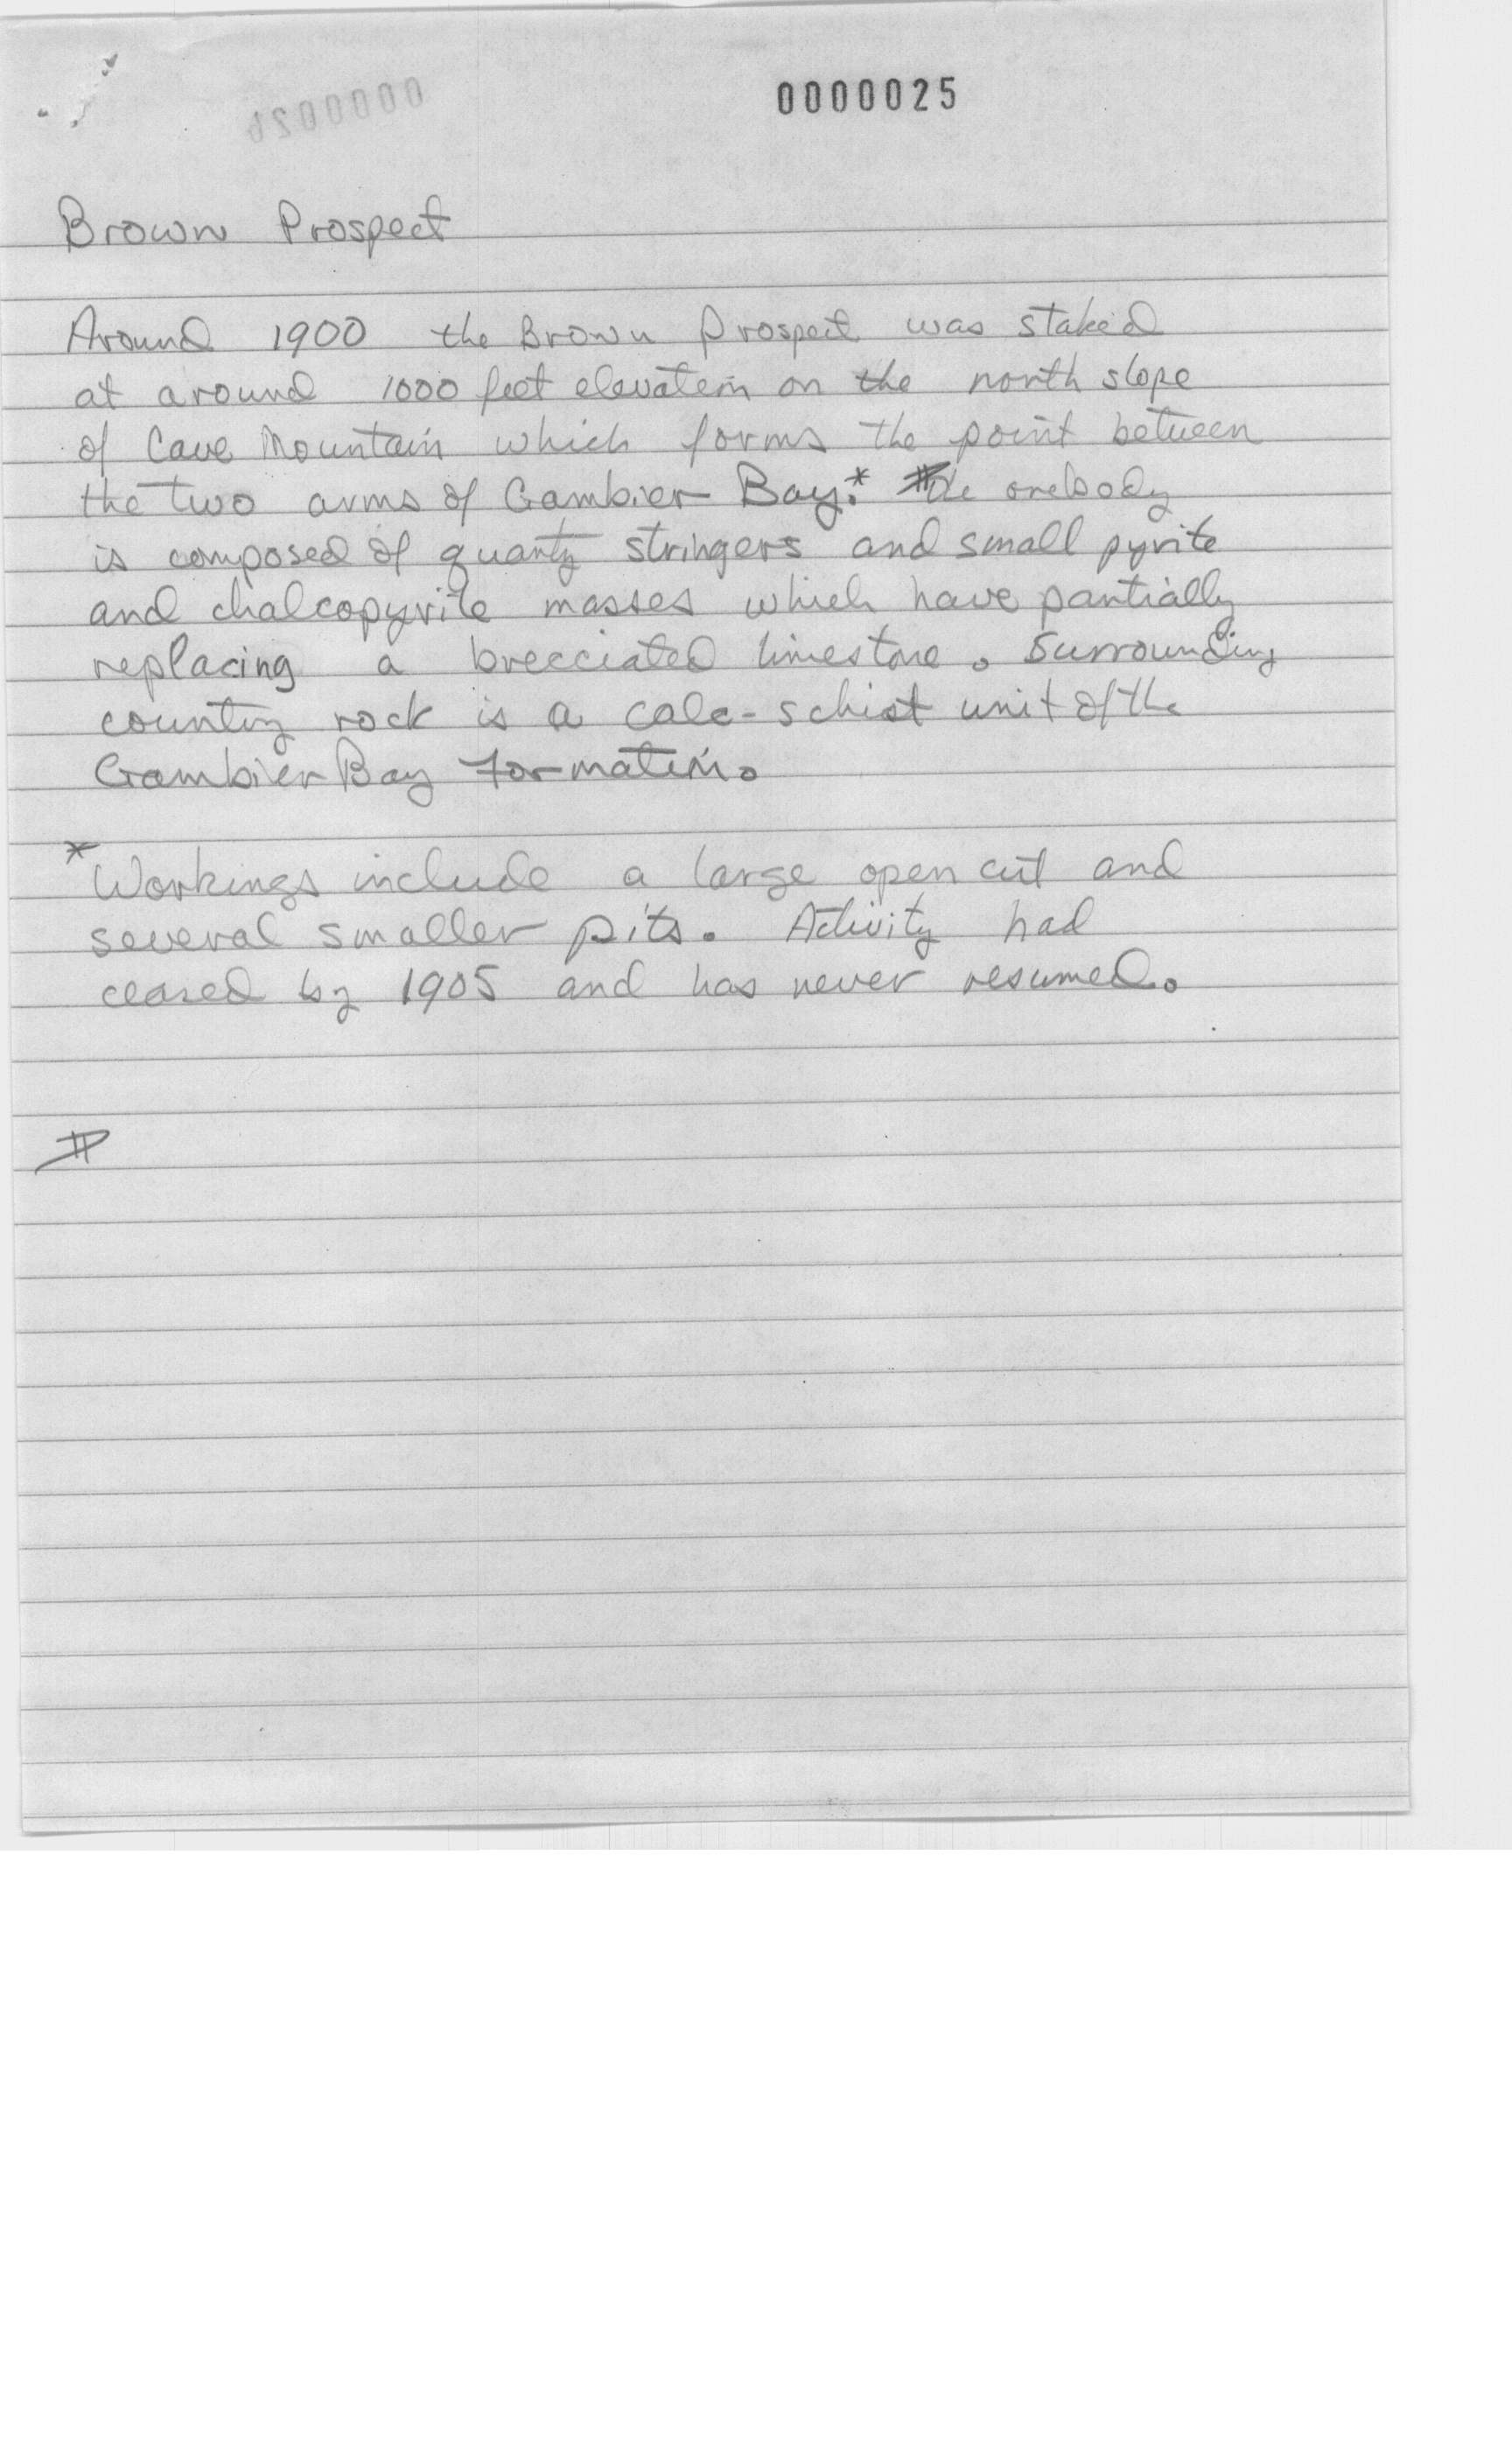 0000025
Brown Prospect
Around 1900 the Brown Prospect was staked
at around 1000 feet elevation on the north slope
of Cave Mountain which forms the point between
the two arms of Gambier Bay.* The orebody
is composed of quartz stringers and small pyrite
and chalcopyrite masses which have partially
replacing a brecciated limestone. Surrounding
country rock is a calc-schist unit of the
Gambier Bay Formation.
*Workings include a large open cut and
several smaller pits. Activity had
ceased by 1905 and has never resumed.